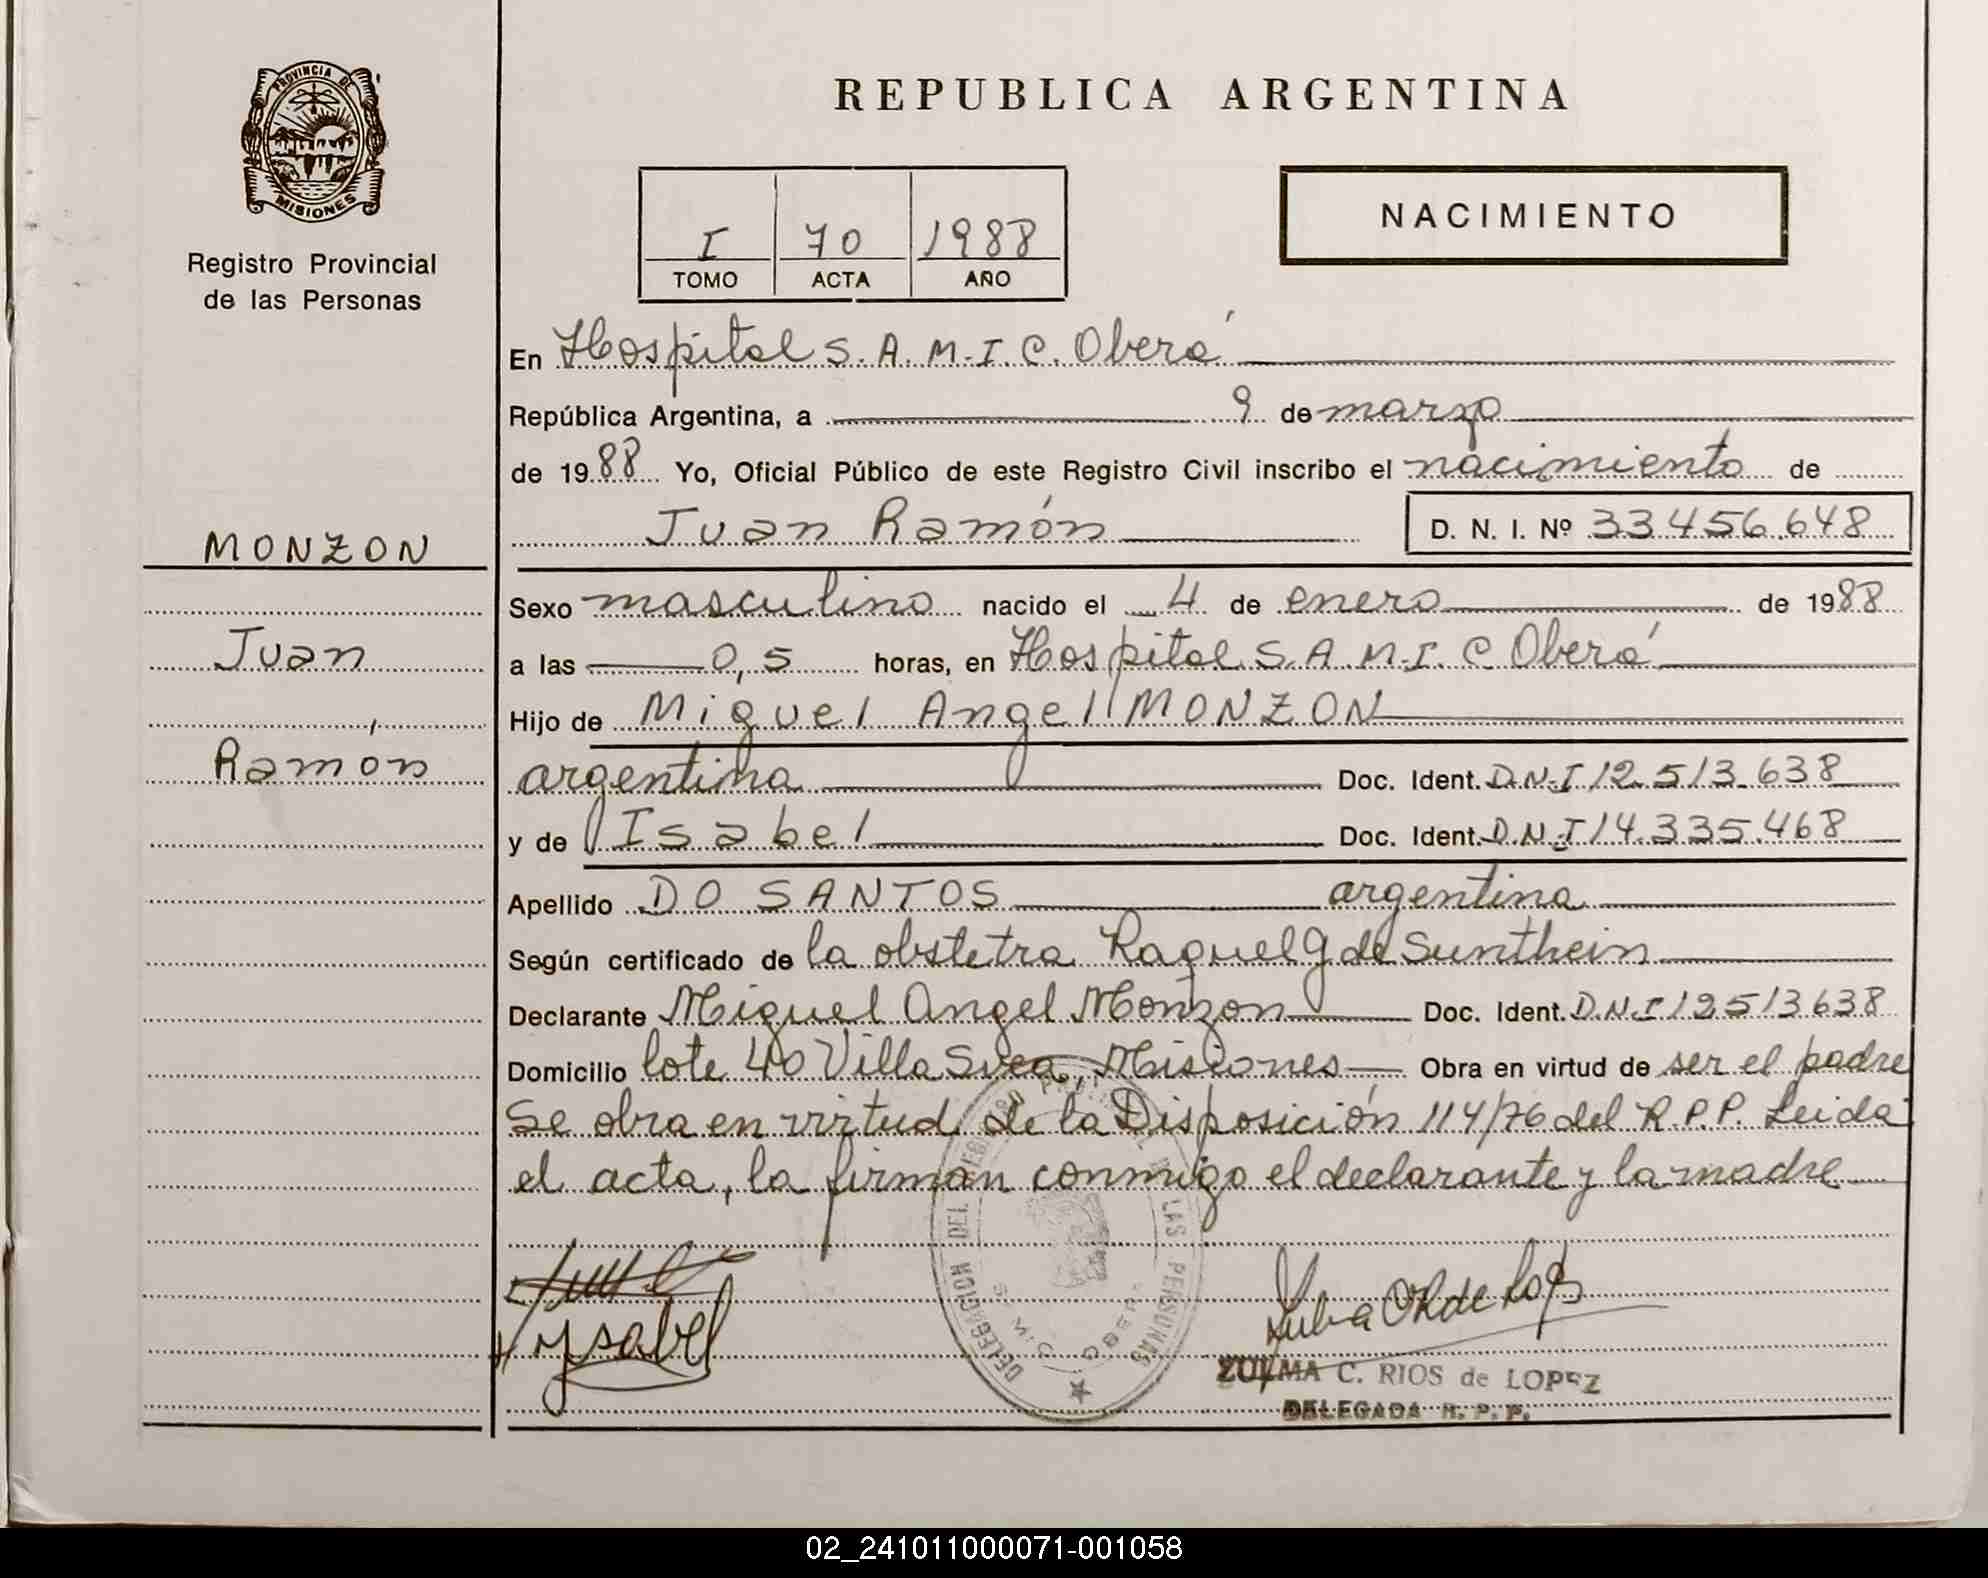 PROVINCIA DE
MISIONES
Registro Provincial
de las Personas
MONZON
Juan
Ramón
REPUBLICA ARGENTINA
I 70 1988
TOMO ACTA AÑO
NACIMIENTO
En Hospital S.A.M.I.C. Oberá
República Argentina, a 9 de marzo
de 1988 Yo, Oficial Público de este Registro Civil inscribo el nacimiento de
Juan Ramón D. N. I. Nº 33.456.648
Sexo masculino nacido el 4 de enero de 1988
a las 0,5 horas, en Hospital S.A.M.I.C Oberá
Hijo de Miguel Angel MONZON
argentina Doc. Ident. D.N.I 12.513.638
y de Isabel Doc. Ident. D.N.I 14.335.468
Apellido DO SANTOS argentina
Según certificado de la obstetra Raquel G de Sunthein
Declarante Miguel Angel Monzon Doc. Ident. D.N.I 12513638
Domicilio lote 40 Villa Svea, Misiones Obra en virtud de ser el padre
Se obra en virtud de la Disposición 114/76 del R.P.P. Leida
el acta, la firman conmigo el declarante y la madre
Ysabel
DELEGACION DEL LAS PERSONAS
ZULMA C. RIOS de LOPEZ
DELEGADA R. P. P.
02_241011000071-001058